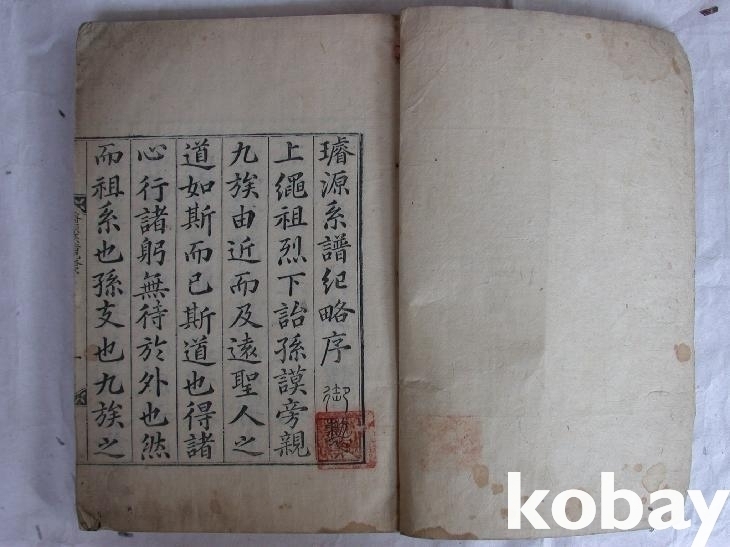 璿源系譜紀略序 御製
上繩祖烈下詒孫謨旁親
九族由近而及遠聖人之
道如斯而已斯道也得諸
心行諸躬無待於外也然
而祖系也孫支也九族之
kobay